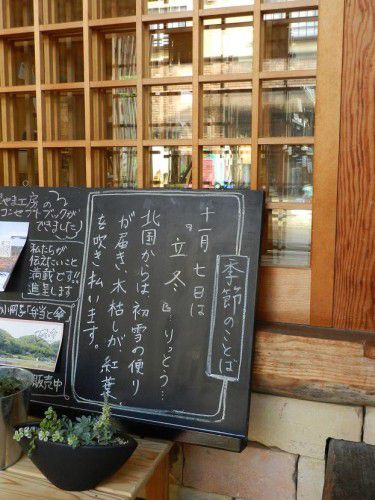 季節のことば
十一月七日は
『立冬』りっとう…
北国からは初雪の便り
が届き、木枯しが紅葉
を吹き払います。
やま工房の
コンセプトブックが
できました♪
私たちが
伝えたいこと
満載です!!
進呈します
弁当と傘
販売中